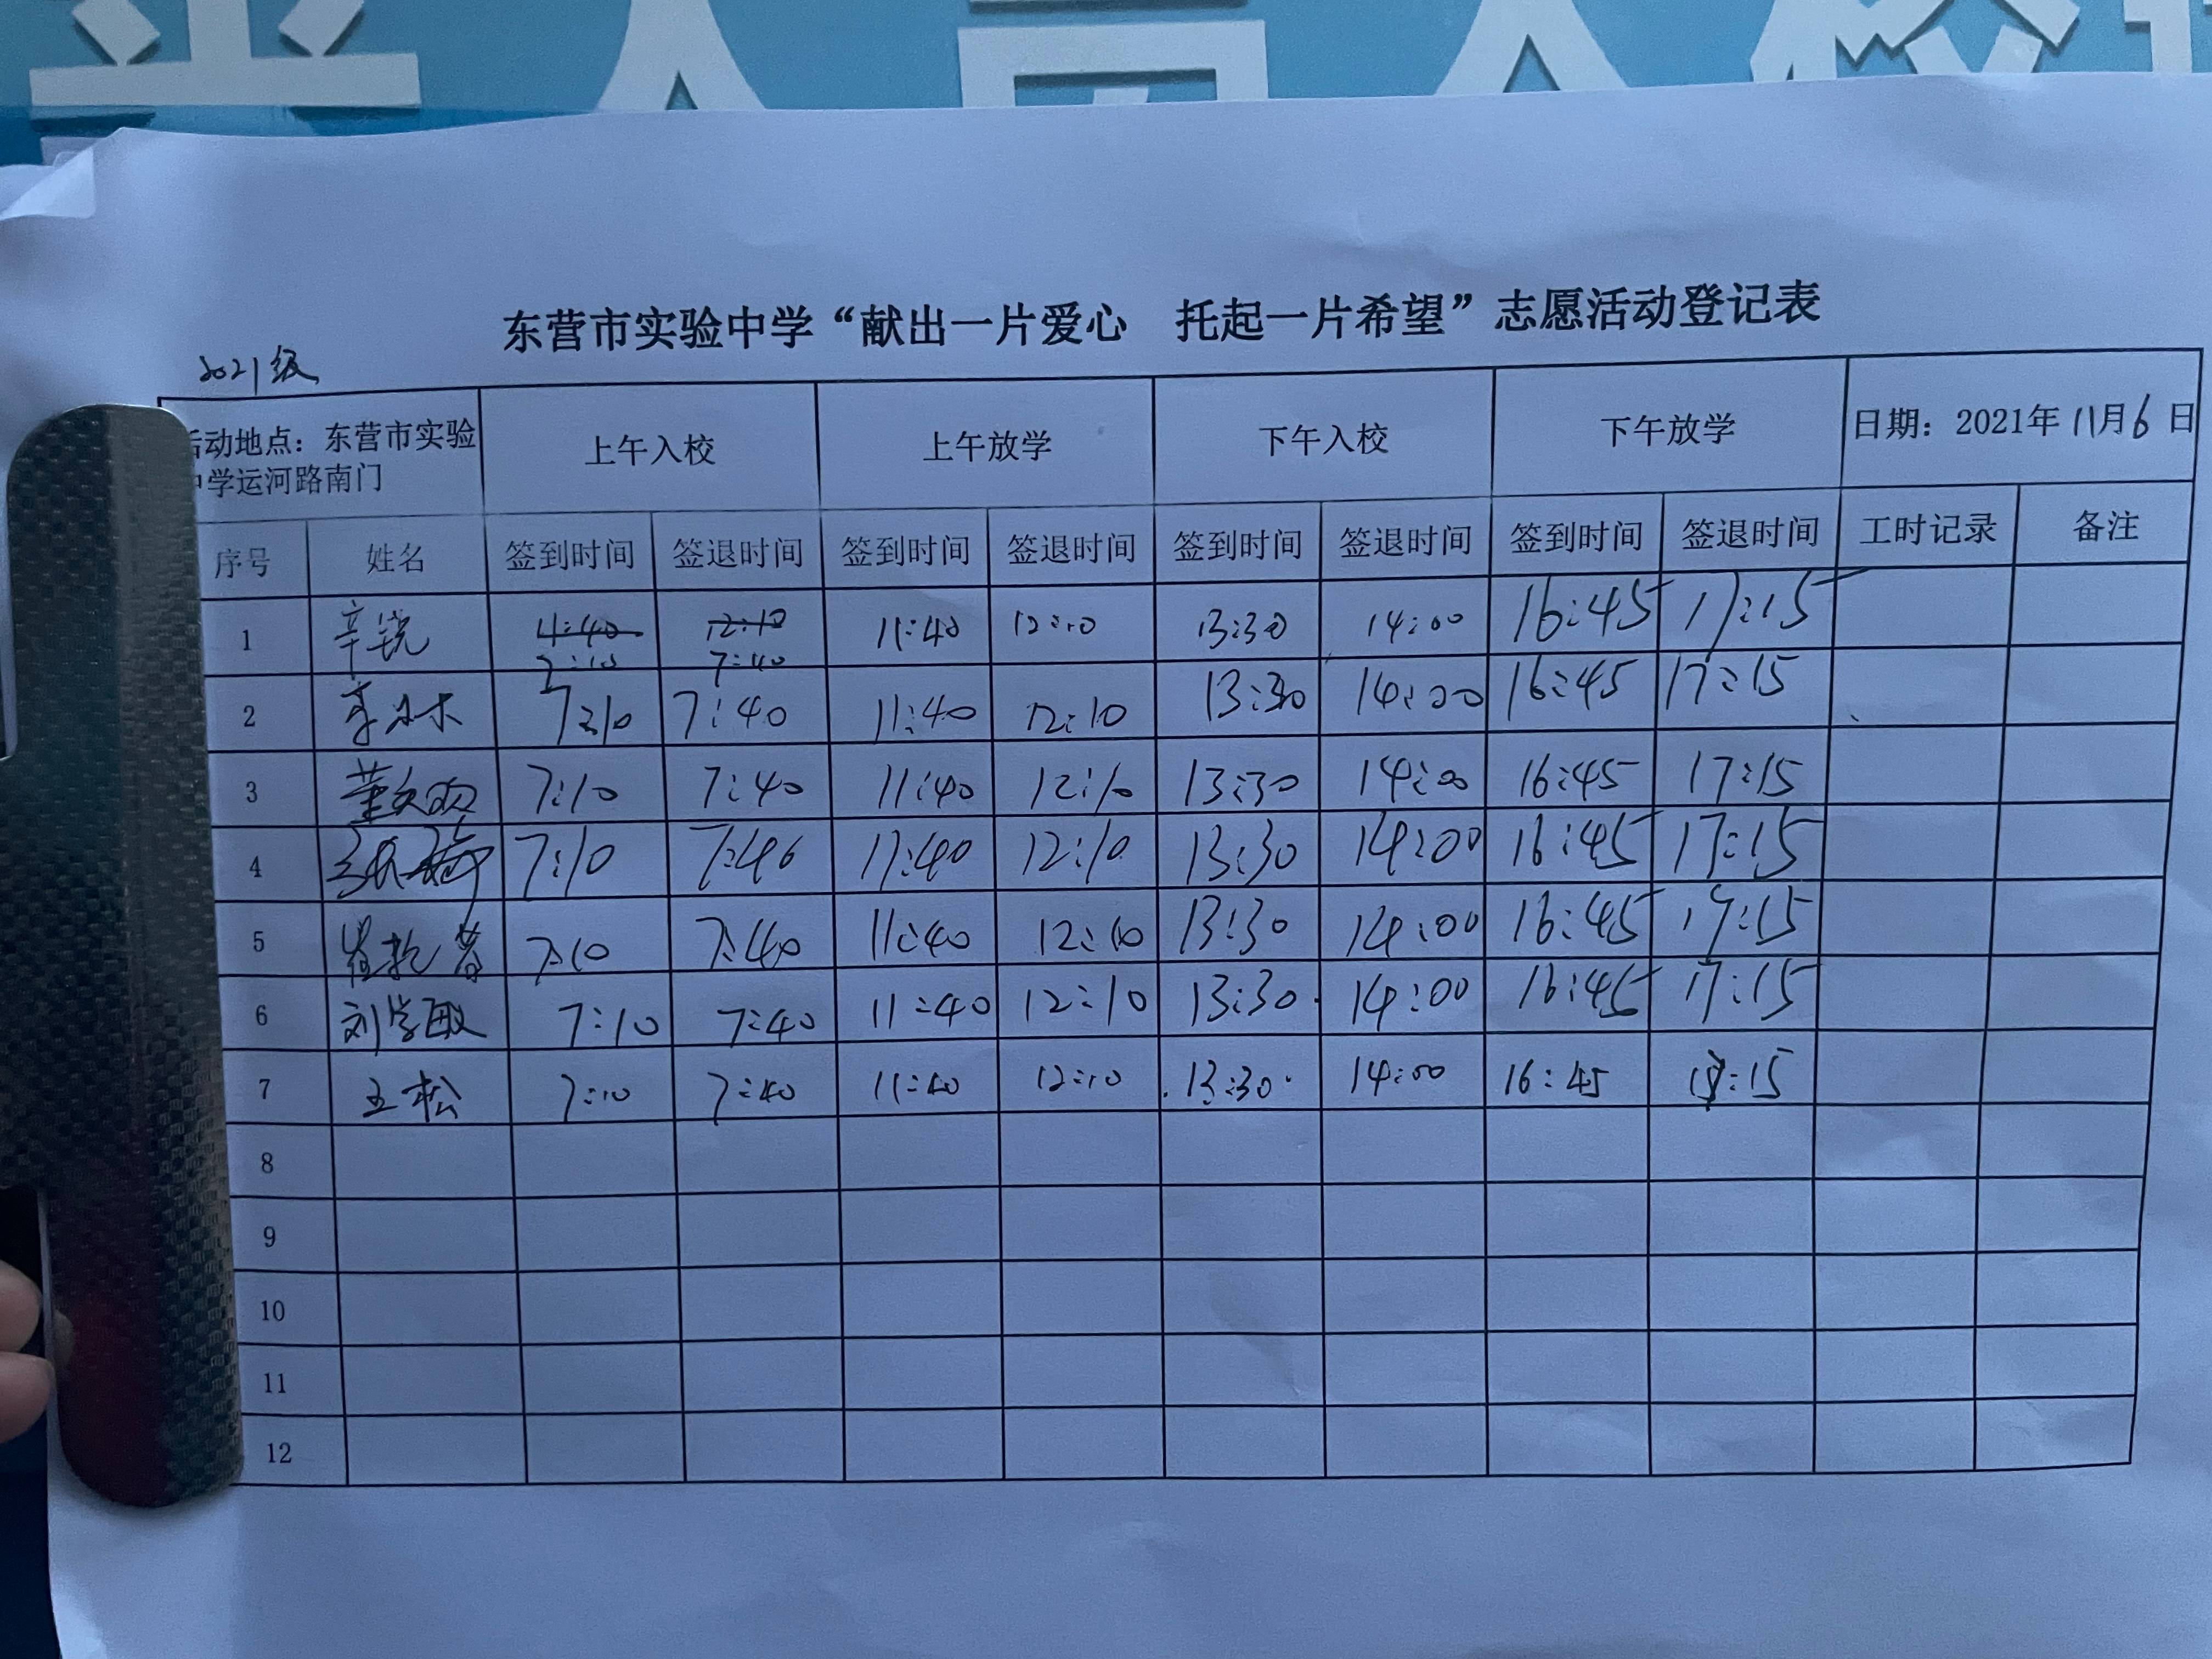 东营市实验中学“献出一片爱心 托起一片希望”志愿活动登记表
2021级
活动地点：东营市实验中学运河路南门 上午入校 上午放学 下午入校 下午放学 日期：2021年11月6日
序号 姓名 签到时间 签退时间 签到时间 签退时间 签到时间 签退时间 签到时间 签退时间 工时记录 备注
1 辛锐 11:40 7:10 12:10 7:40 11:40 12:10 13:30 14:00 16:45 17:15
2 7:10 7:40 11:40 12:10 13:30 14:00 16:45 17:15
3 7:10 7:40 11:40 12:10 13:30 14:00 16:45 17:15
4 7:10 7:40 11:40 12:10 13:30 14:00 16:45 17:15
5 7:10 7:40 11:40 12:10 13:30 14:00 16:45 17:15
6 刘学敏 7:10 7:40 11:40 12:10 13:30 14:00 16:45 17:15
7 王松 7:10 7:40 11:40 12:10 13:30 14:00 16:45 17:15
8
9
10
11
12